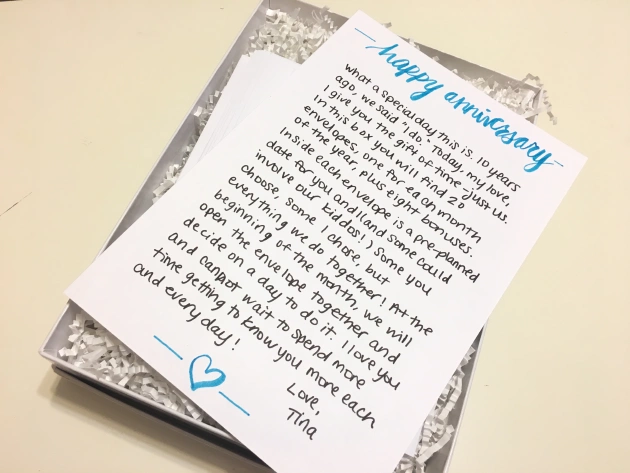 happy anniversary
What a special day this is. 10 years
ago, we said "I do." Today, my love,
I give you the gift of time - just us.
In this box you will find 20
envelopes, one for each month
of the year, plus eight bonuses.
Inside each envelope is a pre-planned
date for you and I (and some could
involve our kiddos!) Some you
choose, some I chose, but
everything we do together! At the
beginning of the month, we will
open the envelope together and
decide on a day to do it. I love you
and cannot wait to spend more
time getting to know you more each
and every day!
Love,
Tina